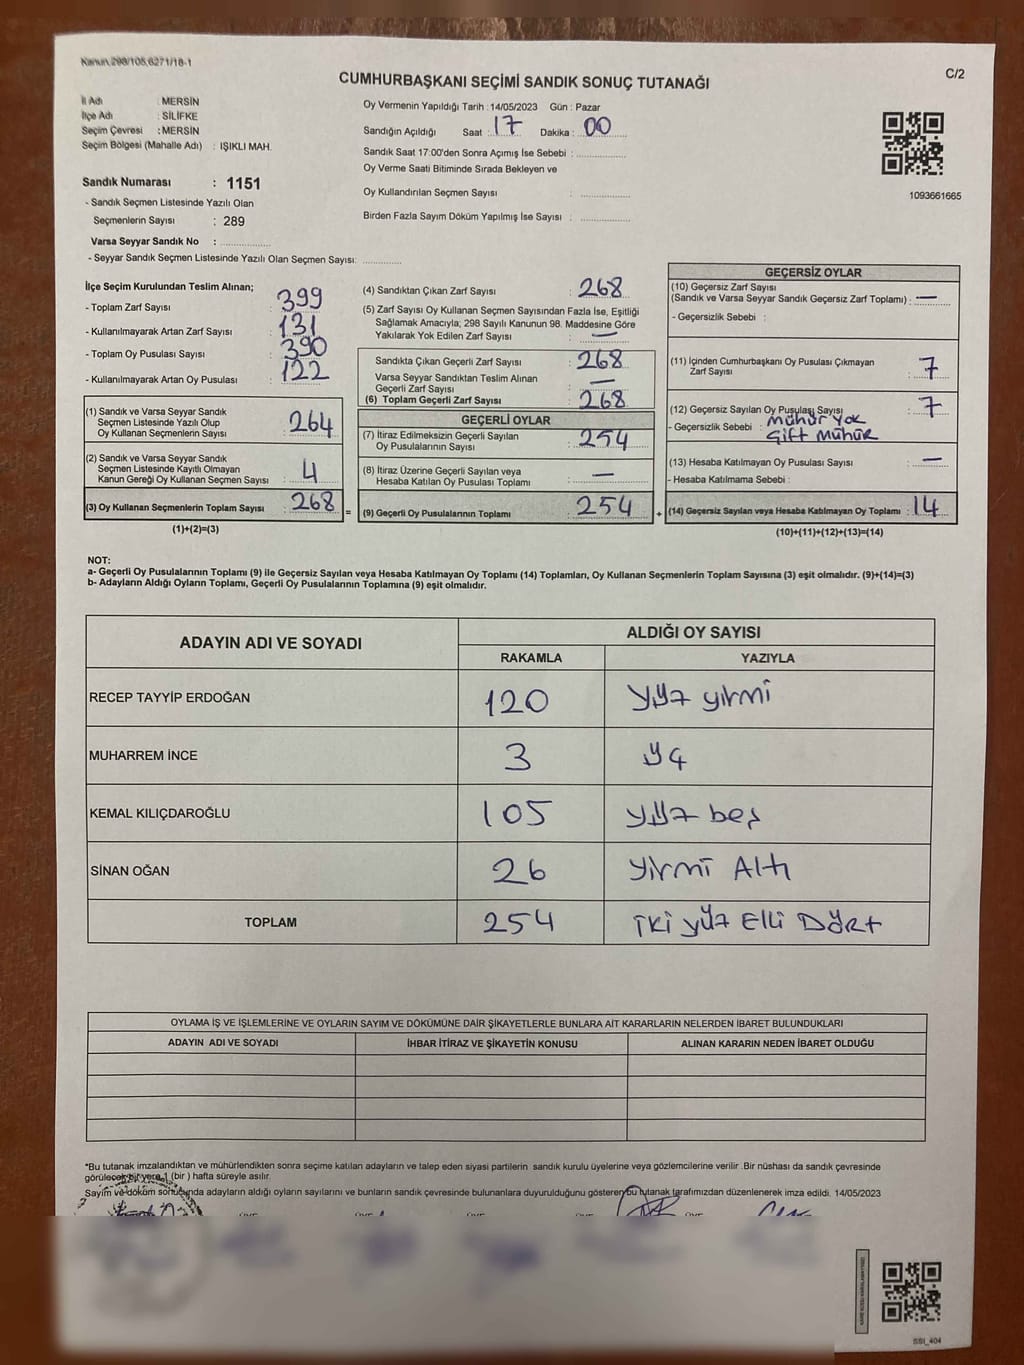 Kanun.298/105,6271/18-1
C/2
CUMHURBAŞKANI SEÇİMİ SANDIK SONUÇ TUTANAĞI
İl Adı : MERSİN
İlçe Adı : SİLİFKE
Seçim Çevresi : MERSİN
Seçim Bölgesi (Mahalle Adı) : IŞIKLI MAH.
Sandık Numarası : 1151
- Sandık Seçmen Listesinde Yazılı Olan
Seçmenlerin Sayısı : 289
Varsa Seyyar Sandık No : ................
- Seyyar Sandık Seçmen Listesinde Yazılı Olan Seçmen Sayısı: ............
Oy Vermenin Yapıldığı Tarih : 14/05/2023 Gün : Pazar
Sandığın Açıldığı Saat : 17 Dakika : 00
Sandık Saat 17:00'den Sonra Açımış İse Sebebi : ................
Oy Verme Saati Bitiminde Sırada Bekleyen ve
Oy Kullandırılan Seçmen Sayısı : ................
Birden Fazla Sayım Döküm Yapılmış İse Sayısı : ................
1093661665
İlçe Seçim Kurulundan Teslim Alınan;
- Toplam Zarf Sayısı : 399
- Kullanılmayarak Artan Zarf Sayısı : 131
- Toplam Oy Pusulası Sayısı : 390
- Kullanılmayarak Artan Oy Pusulası : 122
(1) Sandık ve Varsa Seyyar Sandık
Seçmen Listesinde Yazılı Olup
Oy Kullanan Seçmenlerin Sayısı : 264
(2) Sandık ve Varsa Seyyar Sandık
Seçmen Listesinde Kayıtlı Olmayan
Kanun Gereği Oy Kullanan Seçmen Sayısı : 4
(3) Oy Kullanan Seçmenlerin Toplam Sayısı : 268
(1)+(2)=(3)
=
(4) Sandıktan Çıkan Zarf Sayısı : 268
(5) Zarf Sayısı Oy Kullanan Seçmen Sayısından Fazla İse, Eşitliği
Sağlamak Amacıyla; 298 Sayılı Kanunun 98. Maddesine Göre
Yakılarak Yok Edilen Zarf Sayısı : —
Sandıkta Çıkan Geçerli Zarf Sayısı : 268
Varsa Seyyar Sandıktan Teslim Alınan
Geçerli Zarf Sayısı : —
(6) Toplam Geçerli Zarf Sayısı : 268
GEÇERLİ OYLAR
(7) İtiraz Edilmeksizin Geçerli Sayılan
Oy Pusulalarının Sayısı : 254
(8) İtiraz Üzerine Geçerli Sayılan veya
Hesaba Katılan Oy Pusulası Toplamı : —
(9) Geçerli Oy Pusulalarının Toplamı : 254
+
GEÇERSİZ OYLAR
(10) Geçersiz Zarf Sayısı
(Sandık ve Varsa Seyyar Sandık Geçersiz Zarf Toplamı) : —
- Geçersizlik Sebebi :
(11) İçinden Cumhurbaşkanı Oy Pusulası Çıkmayan
Zarf Sayısı : 7
(12) Geçersiz Sayılan Oy Pusulası Sayısı : 7
- Geçersizlik Sebebi : Mühür Yok
Çift Mühür
(13) Hesaba Katılmayan Oy Pusulası Sayısı : —
- Hesaba Katılmama Sebebi :
(14) Geçersiz Sayılan veya Hesaba Katılmayan Oy Toplamı : 14
(10)+(11)+(12)+(13)=(14)
NOT:
a- Geçerli Oy Pusulalarının Toplamı (9) ile Geçersiz Sayılan veya Hesaba Katılmayan Oy Toplamı (14) Toplamları, Oy Kullanan Seçmenlerin Toplam Sayısına (3) eşit olmalıdır. (9)+(14)=(3)
b- Adayların Aldığı Oyların Toplamı, Geçerli Oy Pusulalarının Toplamına (9) eşit olmalıdır.
ADAYIN ADI VE SOYADI
ALDIĞI OY SAYISI
RAKAMLA YAZIYLA
RECEP TAYYİP ERDOĞAN 120 yüz yirmi
MUHARREM İNCE 3 üç
KEMAL KILIÇDAROĞLU 105 yüz beş
SİNAN OĞAN 26 yirmi Altı
TOPLAM 254 iki yüz Elli Dört
OYLAMA İŞ VE İŞLEMLERİNE VE OYLARIN SAYIM VE DÖKÜMÜNE DAİR ŞİKAYETLERLE BUNLARA AİT KARARLARIN NELERDEN İBARET BULUNDUKLARI
ADAYIN ADI VE SOYADI İHBAR İTİRAZ VE ŞİKAYETİN KONUSU ALINAN KARARIN NEDEN İBARET OLDUĞU
*Bu tutanak imzalandıktan ve mühürlendikten sonra seçime katılan adayların ve talep eden siyasi partilerin sandık kurulu üyelerine veya gözlemcilerine verilir .Bir nüshası da sandık çevresinde
görülecek bir yere 1 (bir ) hafta süreyle asılır.
Sayım ve döküm sonucunda adayların aldığı oyların sayılarını ve bunların sandık çevresinde bulunanlara duyurulduğunu gösteren bu tutanak tarafımızdan düzenlenerek imza edildi. 14/05/2023
SSI_404